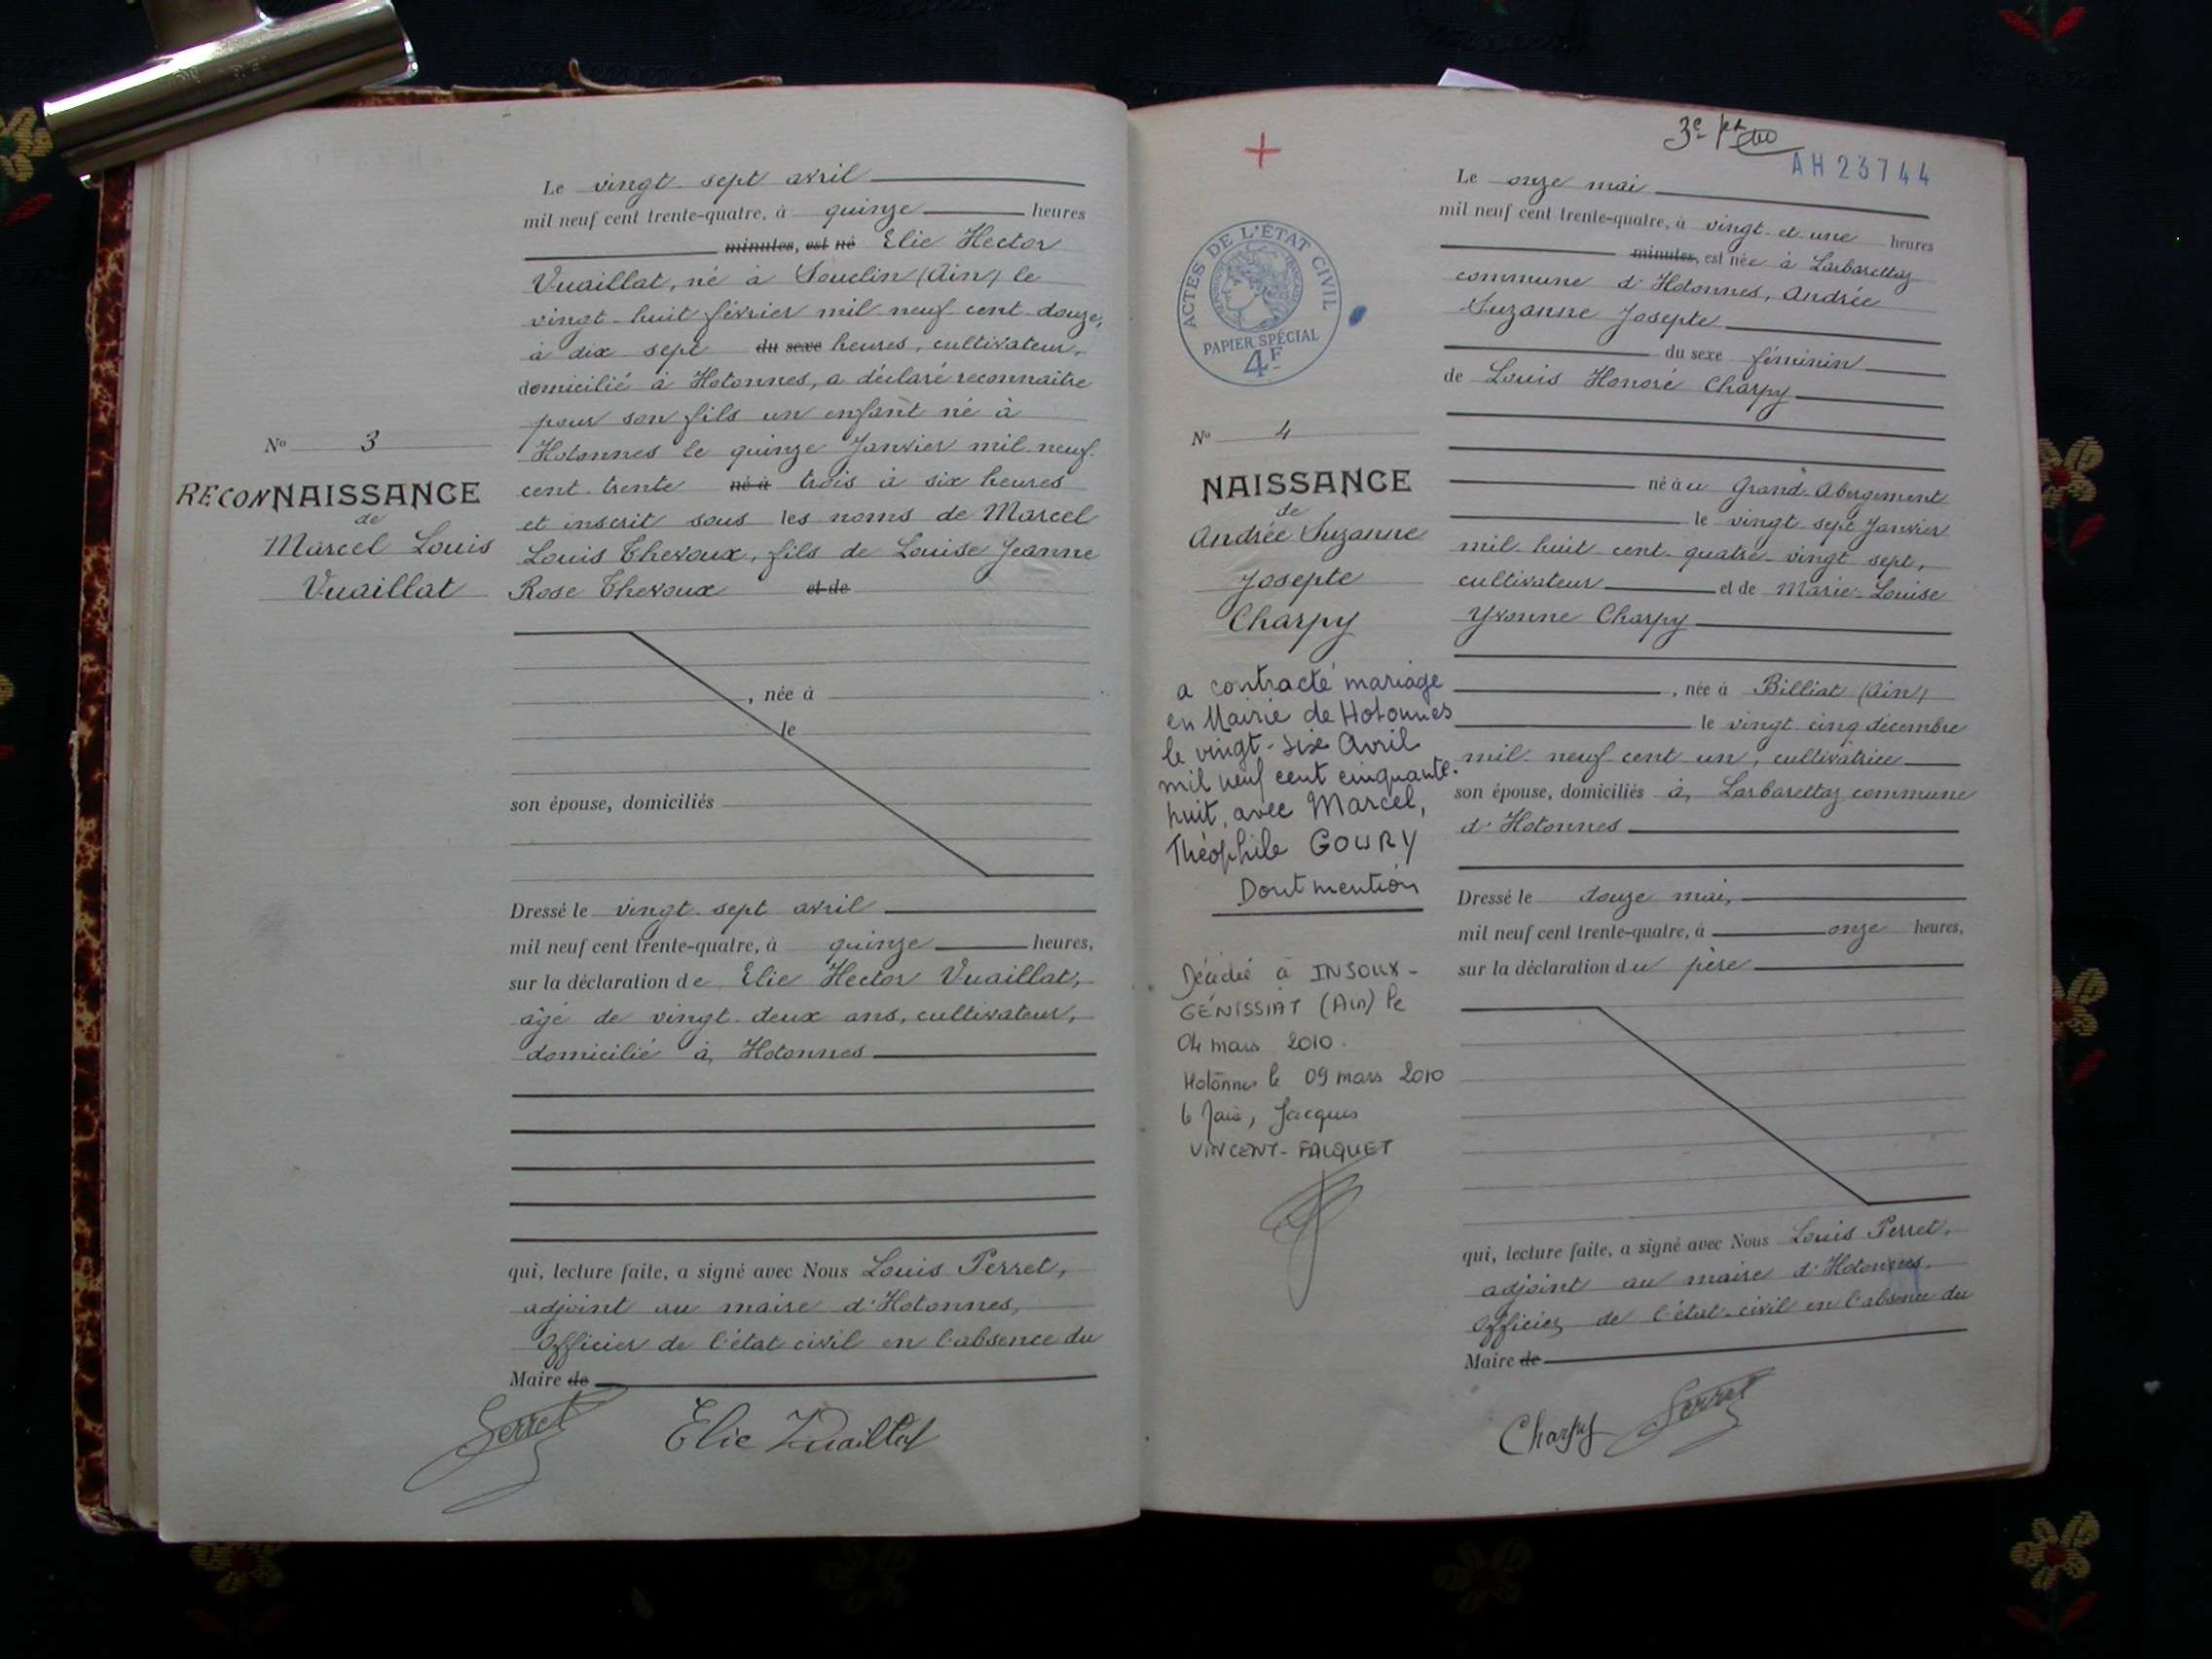 Le vingt-sept avril
mil neuf cent trente-quatre, à quinze heures
minutes, est né Elie Hector
Vuaillat, né à Souclin (Ain) le
vingt-huit février mil neuf cent douze,
à dix sept du sexe heures, cultivateur,
domicilié à Hotonnes, a déclaré reconnaître
pour son fils un enfant né à
Hotonnes le quinze Janvier mil neuf
cent trente né à trois à six heures
et inscrit sous les noms de Marcel
Louis Thevoux, fils de Louise Jeanne
Rose Thevoux et de
, née à
le
son épouse, domiciliés
Dressé le vingt-sept avril
mil neuf cent trente-quatre, à quinze heures,
sur la déclaration de Elie Hector Vuaillat,
âgé de vingt-deux ans, cultivateur,
domicilié à Hotonnes
qui, lecture faite, a signé avec Nous Louis Perret,
adjoint au maire d'Hotonnes,
Officier de l'état civil en l'absence du
Maire de
Perret Elie Vuaillat
No 3
RECONNAISSANCE
de
Marcel Louis
Vuaillat
3e
AH 23744
Le onze mai
mil neuf cent trente-quatre, à vingt et une heures
minutes, est née à Larbarettaz
commune d'Hotonnes, Andrée
Suzanne Josepte
du sexe féminin
de Louis Honoré Charpy
né au Grand-Abergement
le vingt sept Janvier
mil huit cent quatre-vingt sept,
cultivateur et de Marie-Louise
Yvonne Charpy
, née à Billiat (Ain)
le vingt cinq décembre
mil neuf cent un, cultivatrice
son épouse, domiciliés à, Larbarettaz commune
d'Hotonnes
Dressé le douze mai,
mil neuf cent trente-quatre, à onze heures,
sur la déclaration du père
qui, lecture faite, a signé avec Nous Louis Perret,
adjoint au maire d'Hotonnes,
Officier de l'état-civil en l'absence du
Maire de
Charpy Perret
ACTES DE L'ÉTAT CIVIL
RÉPUBLIQUE FRANÇAISE
PAPIER SPÉCIAL
4F
No 4
NAISSANCE
de
Andrée Suzanne
Josepte
Charpy
a contracté mariage
en Mairie de Hotonnes
le vingt-six Avril
mil neuf cent cinquante-
huit, avec Marcel,
Théophile GOURY
Dont mention
Décédée à INJOUX-
GÉNISSIAT (Ain) le
04 mars 2010.
Hotonnes le 09 mars 2010
le Maire, Jacques
VINCENT-FALQUET